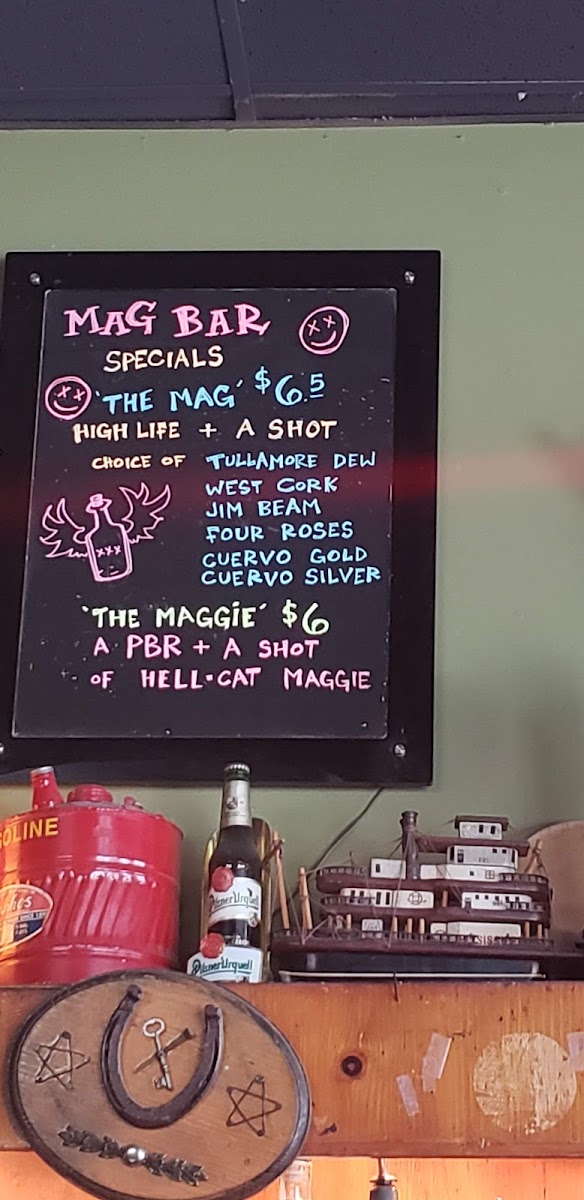 MAG BAR
SPECIALS
'THE MAG' $6.5
HIGH LIFE + A SHOT
CHOICE OF TULLAMORE DEW
WEST CORK
JIM BEAM
FOUR ROSES
CUERVO GOLD
CUERVO SILVER
XXX
'THE MAGGIE' $6
A PBR + A SHOT
OF HELL-CAT MAGGIE
OLINE
Pilsner Urquell
Pilsner Urquell